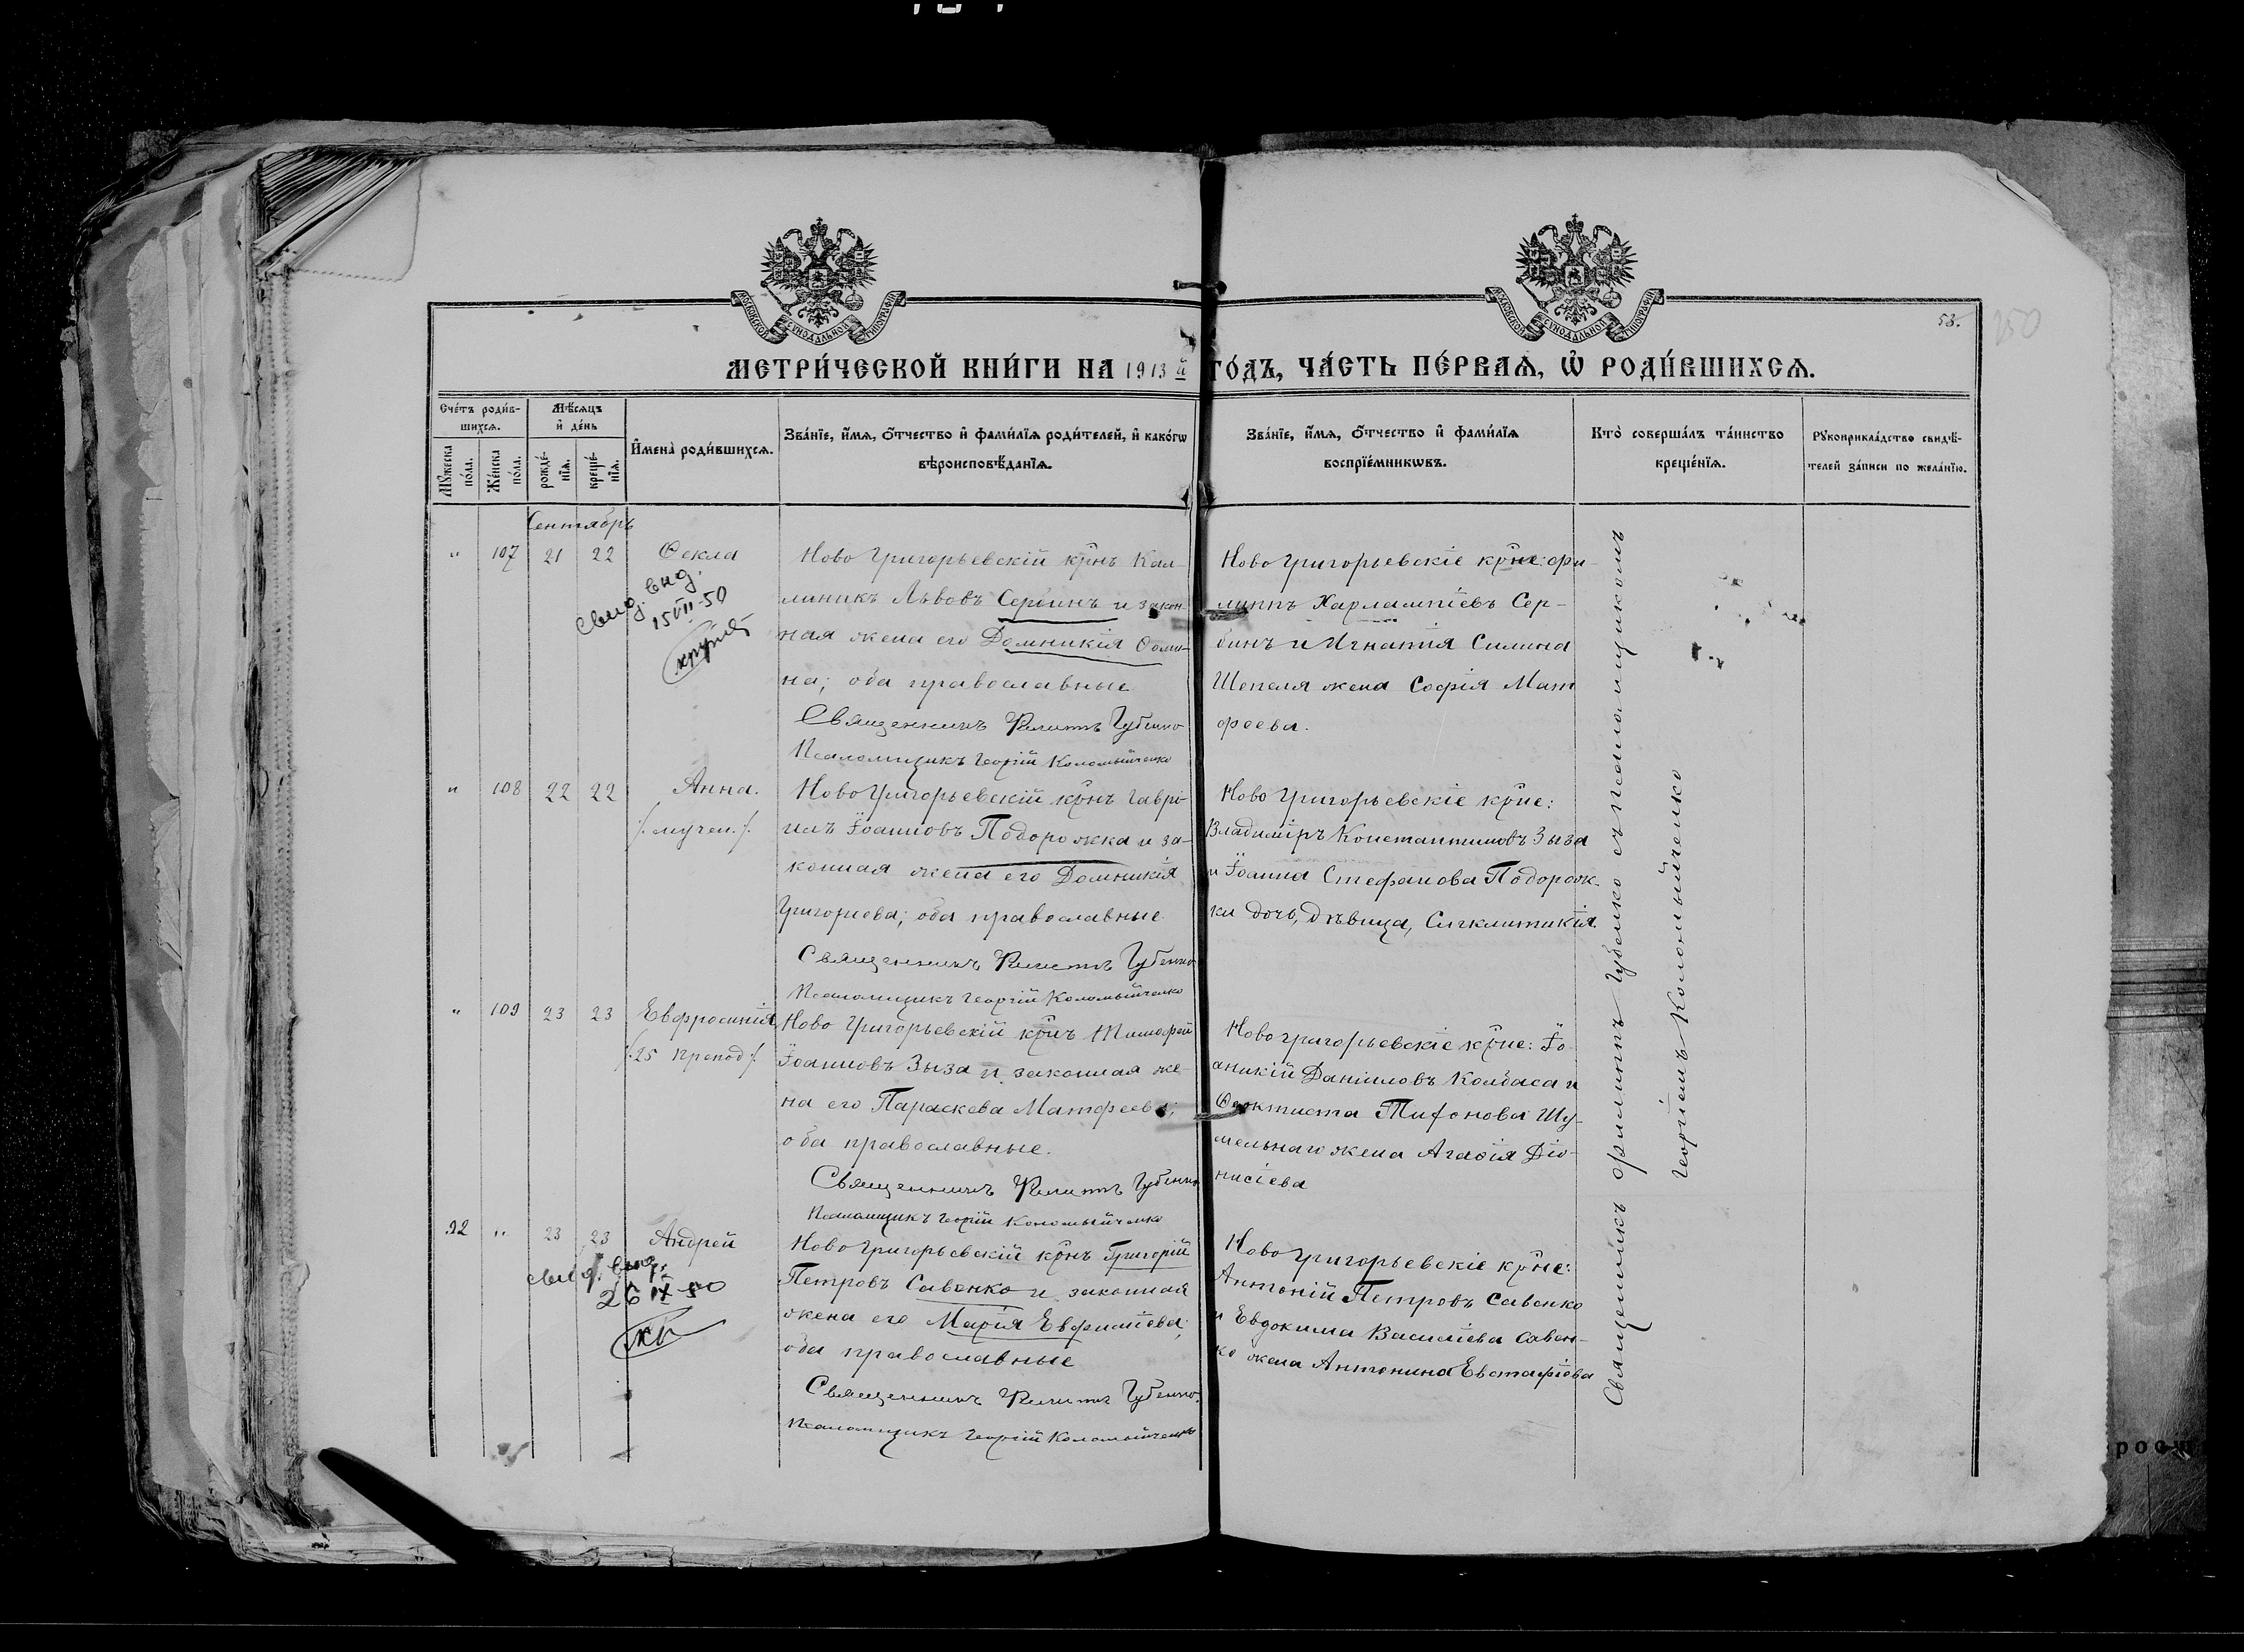 МОСКОВСКОЙ СѴНОДАЛЬНОЙ ТИПОГРАФІИ
МОСКОВСКОЙ СѴНОДАЛЬНОЙ ТИПОГРАФІИ
58.
250
МЕТРИ́ЧЕСКОЙ КНИ́ГИ НА 1913й ГО́ДЪ, ЧА́СТЬ ПЕ́РВАѦ, Ѡ҆ РОДИ́ВШИХСѦ.
Сче́тъ роди́в-
шихсѧ.
Мꙋ́жеска по́ла.
Же́нска по́ла.
Мѣ́сѧцъ
и҆ де́нь
рожде́-
нїѧ.
креще́-
нїѧ.
И҆мена̀ роди́вшихсѧ.
Зва́нїе, и҆́мѧ, ѻ҆́тчество и҆ фамѝлїѧ роди́телей, и҆ како́гѡ
вѣроисповѣ́данїѧ.
Зва́нїе, и҆́мѧ, ѻ҆́тчество и҆ фамѝлїѧ
воспрїе́мникѡвъ.
Кто̀ соверша́лъ та́инство
креще́нїѧ.
Рꙋкоприкла́дство свидѣ́-
телей за́писи по жела́нїю.
Сентябрь
" 107 21 22 Ѳекла
свид. выд.
15 VII-50
Ново Григорьевскій крнъ Кал-
линикъ Львовъ Сербинъ и закон-
ная жена его Домникія Ѳоми-
на; оба православные
Священникъ Филиппъ Губенко
Псаломщикъ Георгій Коломыйченко
Ново Григорьевскіе крне: Фи-
липпъ Харлампіевъ Сер-
бинъ и Игнатія Силина
Шепеля жена Софія Мат
ѳеева.
" 108 22 22 Анна.
/. мучен. /.
Ново Григорьевскій крнъ Гаврі-
илъ Іоанновъ Подорожка и за-
конная жена его Домникія
Григорьева; оба православные
Священникъ Филиппъ Губенко
Псаломщикъ Георгій Коломыйченко
Ново Григорьевскіе крне:
Владиміръ Константиновъ Зыза
и Іоанна Стефанова Подорож-
ки дочь, дѣвица, Сигклитикія.
" 109 23 23 Евфросинія
/. 25 препод /.
Ново Григорьевскій крнъ Тимоѳей
Іоанновъ Зыза и законная же-
на его Параскева Матѳеева;
оба православные.
Священникъ Филиппъ Губенко
Псаломщикъ Георгій Коломыйченко
Ново Григорьевскіе крне: Іо-
аникій Даніиловъ Колбаса и
Ѳеоктиста Тифонова Шу-
мельнаго жена Агафія Діо-
нисіева
92 " 23 23 Андрей
свид. выд.
26 IX 50
Ново Григорьевскій крнъ Григорій
Петровъ Савенко и законная
жена его Марія Евфиміева;
оба православные
Священникъ Филиппъ Губенко.
Псаломщикъ Георгій Коломыйченко
Ново Григорьевскіе крне:
Антоній Петровъ Савенко
и Евдокима Василіева Савен-
ко жена Антонина Евстафіева
Священникъ Филиппъ Губенко съ псаломщикомъ
Георгіемъ Коломыйченко